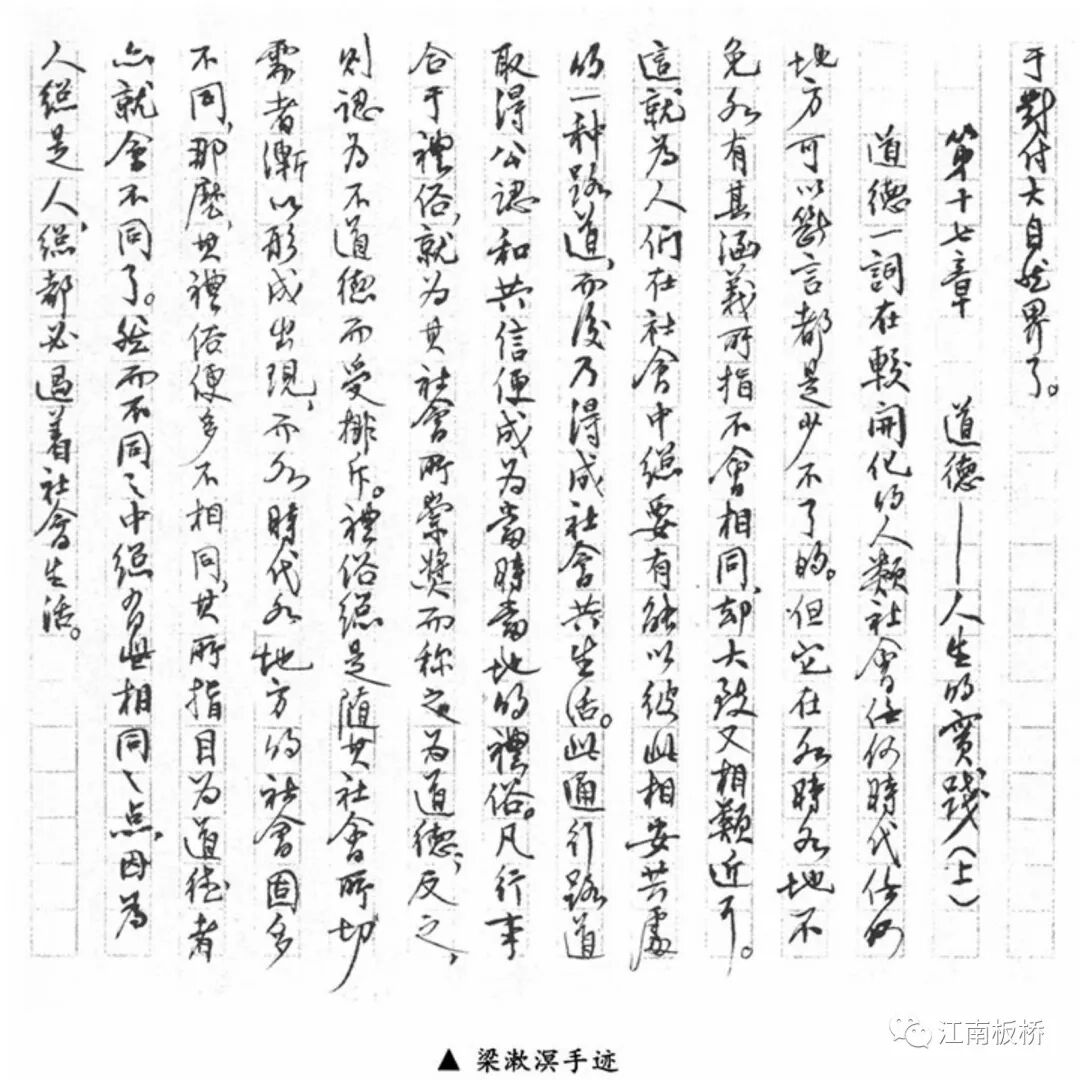 于對付大自然界了。
第十七章 道德——人生的實踐(上)
道德一詞在較開化的人類社會任何時代任何
地方可以斷言都是少不了的。但它在各時各地不
免各有其涵義所指不會相同,却大致又相類近耳。
這就為人們在社會中總要有能以彼此相安共處
的一种路道,而後乃得成社會共生活。此通行路道
取得公認和共信便成為當時當地的禮俗。凡行事
合于禮俗,就为其社會所崇奬而称之为道德;反之,
则認为不道德而受排斥。禮俗總是隨其社會所切
需者漸以形成出現,而各時代各地方的社會固多
不同,那麽,其禮俗便多不相同,其所指目为道德者
亦就會不同了。然而不同之中總有些相同之点,因為
人總是人,總都必過着社會生活。
江南板桥
▲ 梁漱溟手迹